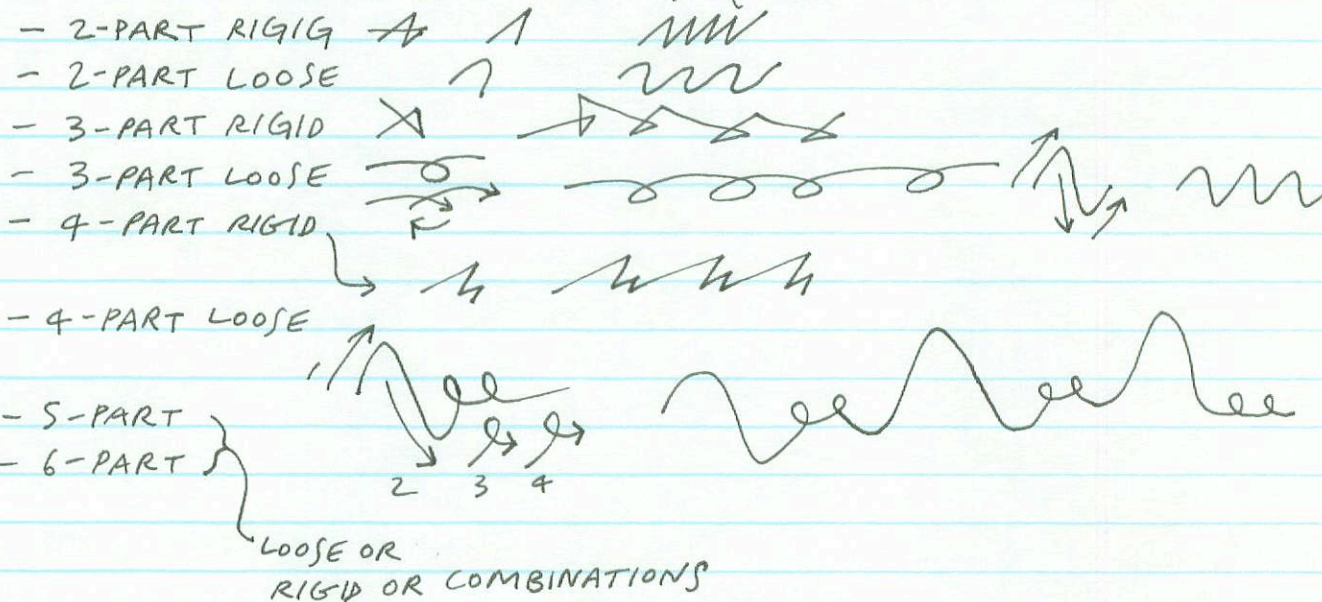 - 2-PART RIGIG
- 2-PART LOOSE
- 3-PART RIGID
- 3-PART LOOSE
- 4-PART RIGID
- 4-PART LOOSE
- 5-PART
- 6-PART
2 3 4
LOOSE OR
RIGID OR COMBINATIONS